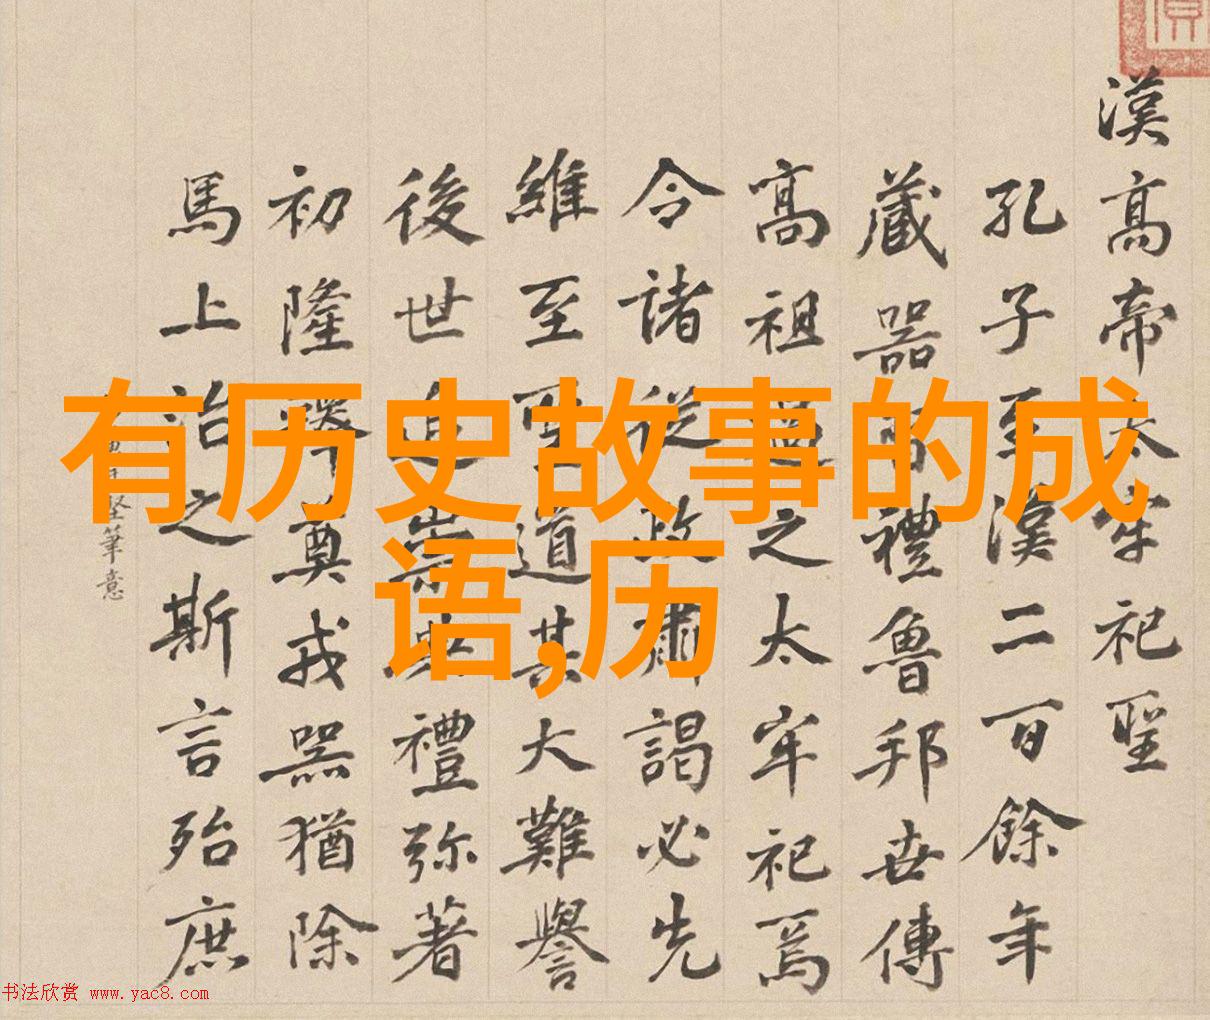 有历史故事的成
语,历
漢高帝太牢祀聖
孔子至漢二百餘年
藏器 禮魯邦世傳
高祖 之太牢祀焉
令諸 從政 謁必先
維至 聖道其大難譽
後世 崇 禮弥著
初隆 尊戎器猶除
馬上治之斯言殆庶
堅筆意
书法欣赏 www.yac8.com